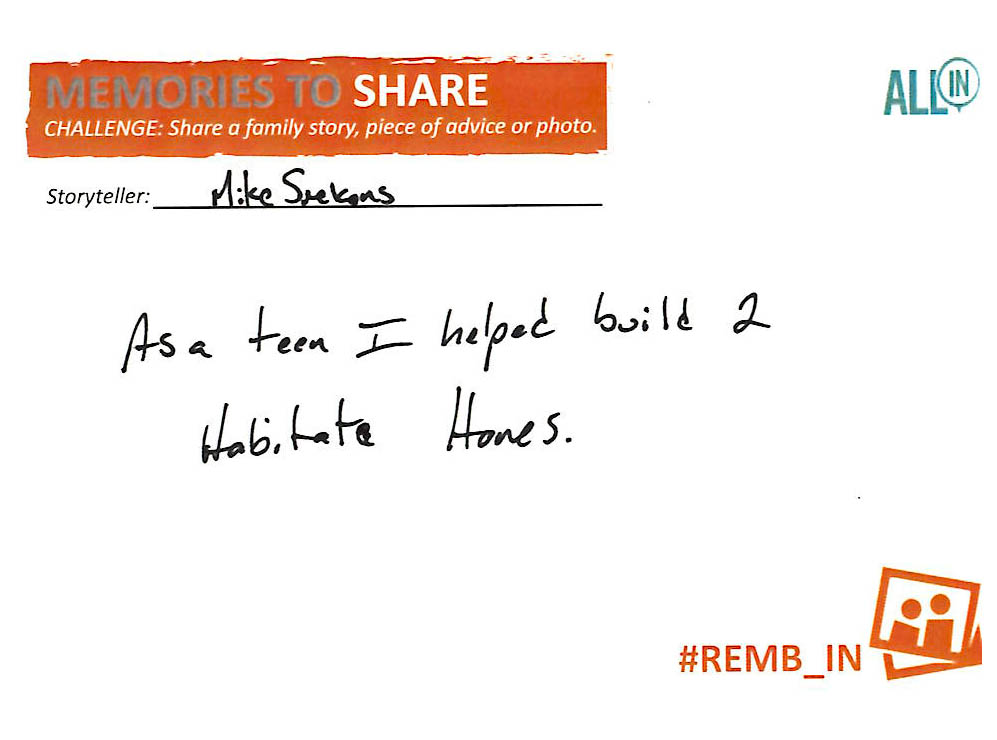 MEMORIES TO SHARE
CHALLENGE: Share a family story, piece of advice or photo.
ALL IN
Storyteller: Mike
As a teen I helped build 2
Habitate Homes.
#REMB_IN